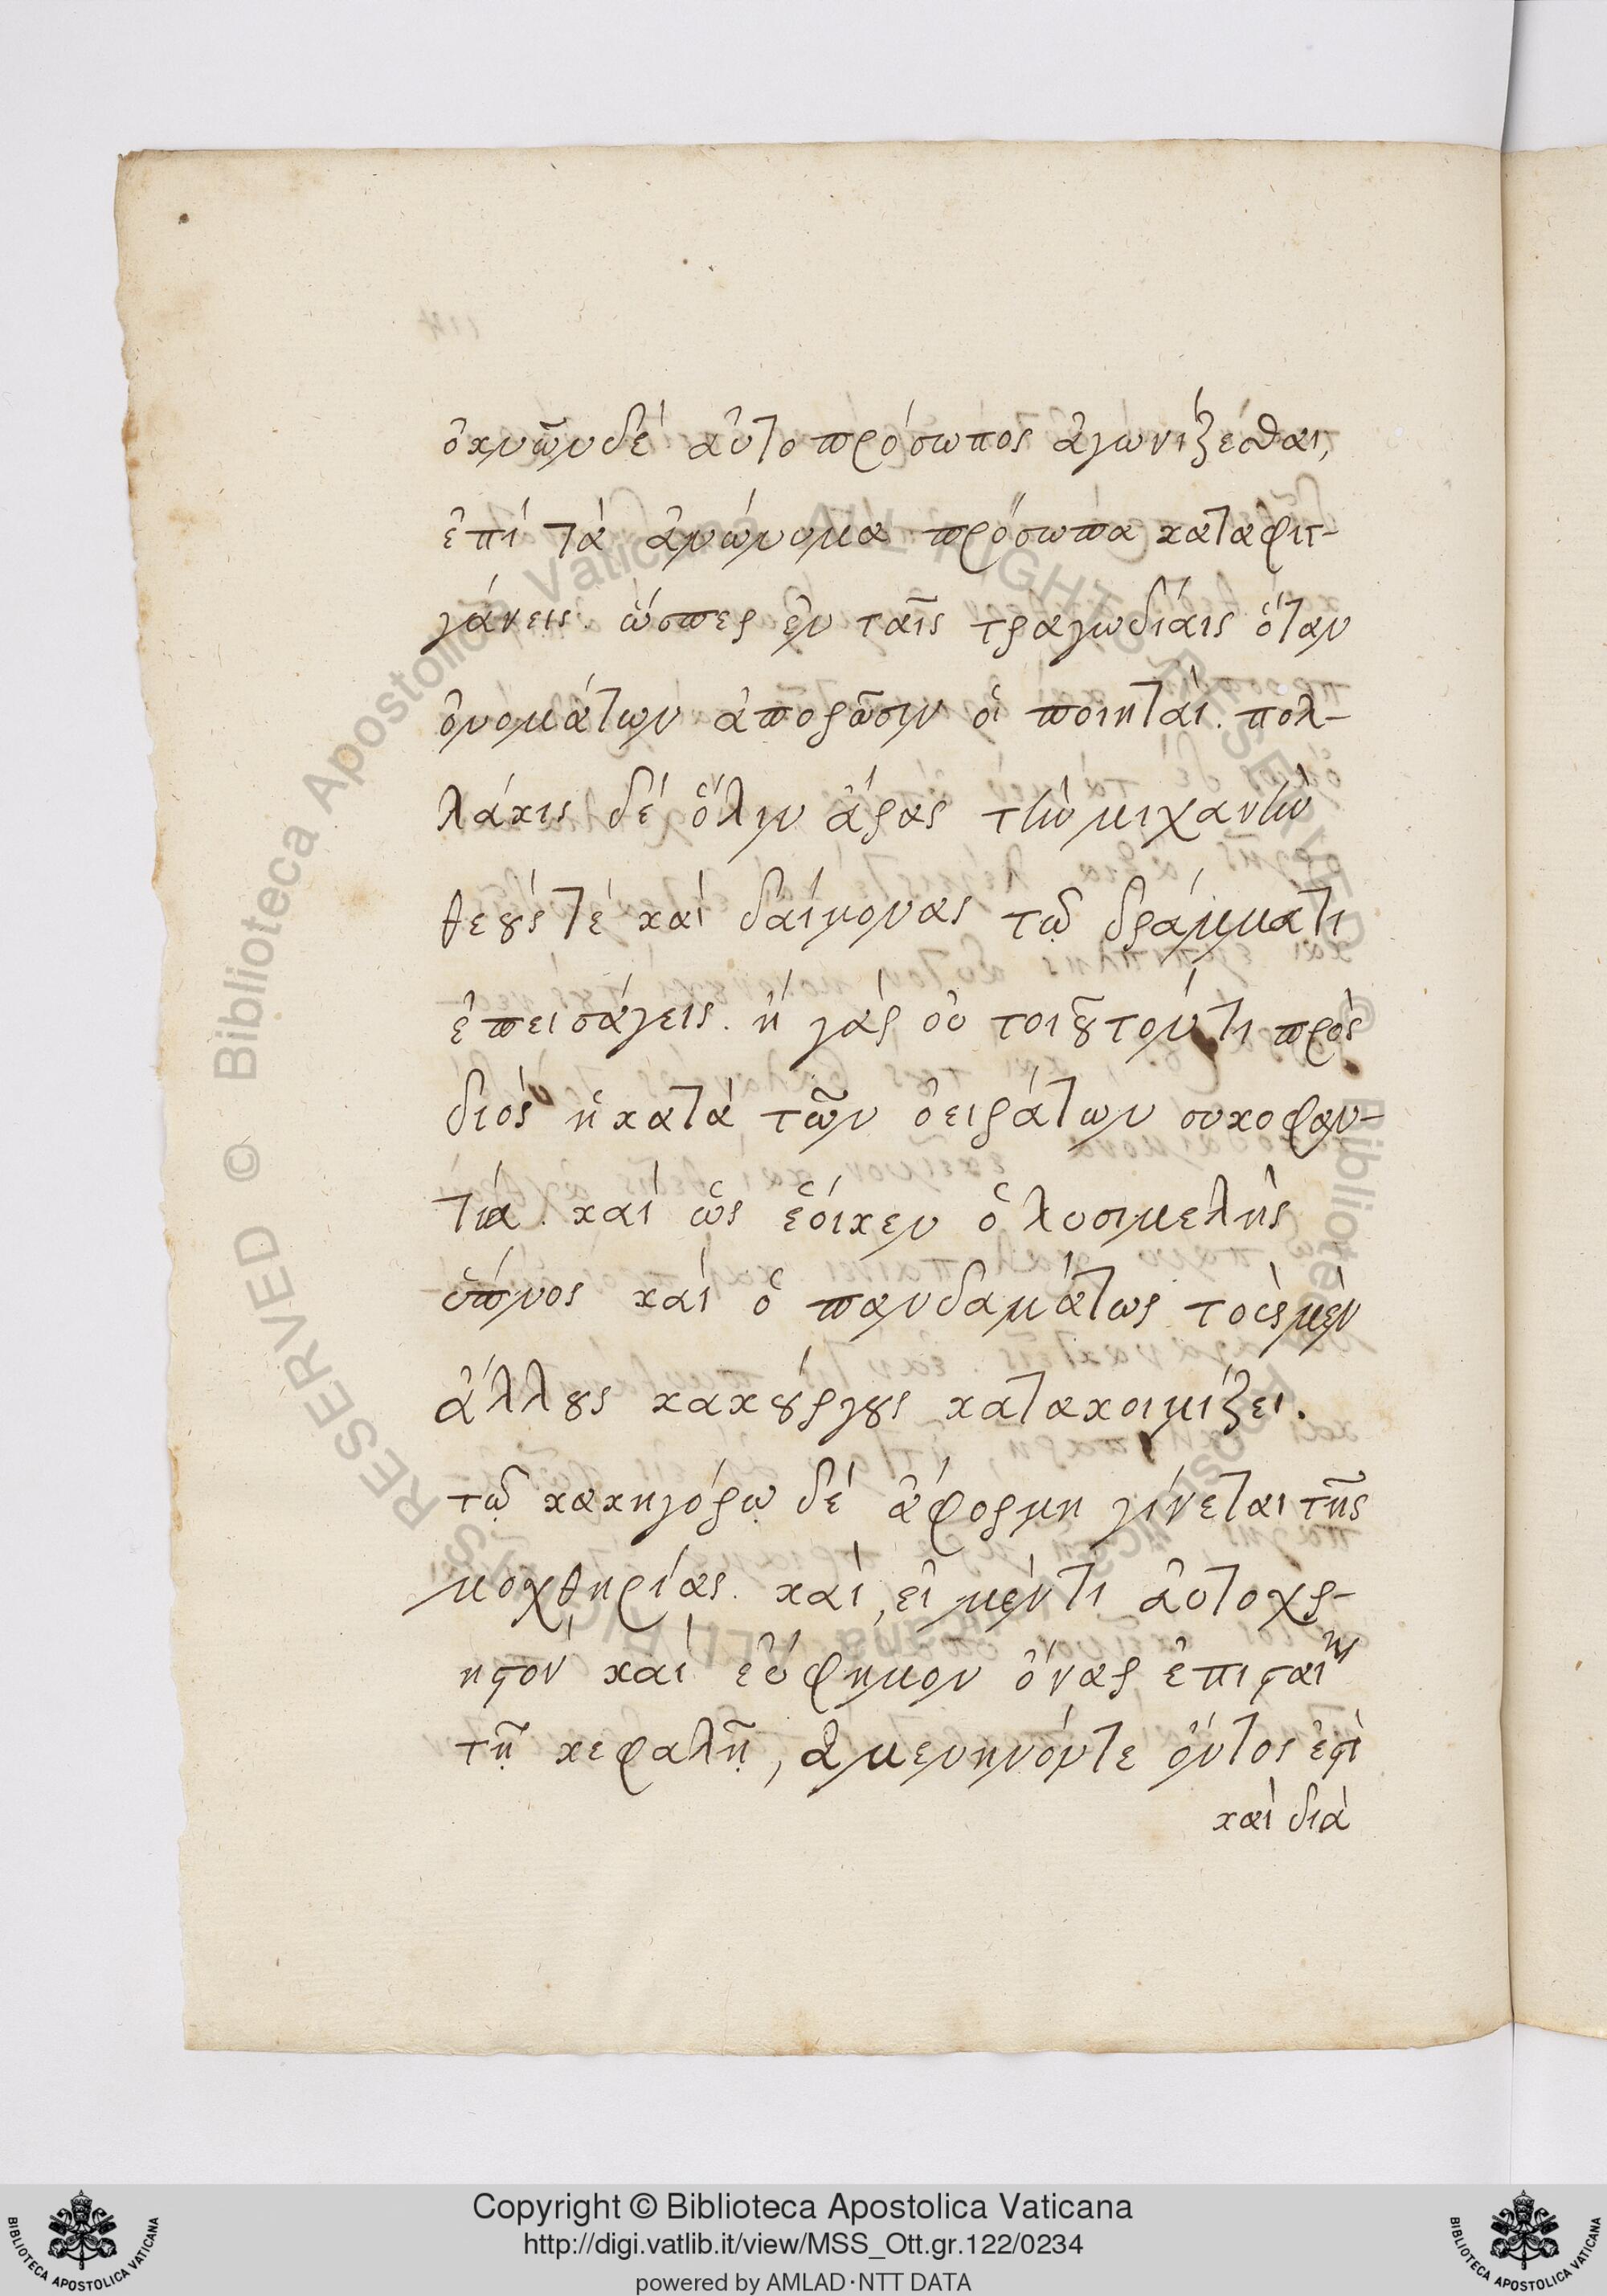 ὀκνῶν δέ αὐτοπρόσωπος ἀγωνίζεσθαι,
ἐπί τά ἀνώνυμα πρόσωπα καταφιτ-
γάνεις. ὥσπερ ἐν ταῖς τραγωδίαις ὅταν
ὀνομάτων ἀπορῶσιν οἱ ποιηταί. πολ-
λάκις δέ ὅλην ἄρας τὴν μιχανὴν
θεούς τέ καί δαίμονας τῷ δράμματι
ἐπεισάγεις. ἤ γάρ οὐ τοιοῦτόν τι πρός
διός ἡ κατά τῶν ὀειράτων συκοφαν-
τία. καί ὡς ἔοικεν ὁ λυσιμελής
ὕπνος καί ὁ πανδαμάτως τοὺς μέν
ἄλλους κακούργους κατακοιμίζει.
τῷ κακηγόρῳ δέ ἀφορμη γίνεται τῆς
μοχθηρίας. καί, εἰ μέν τι αὐτοχρ-
ηστόν καί εὔφημον ὄναρ ἐπισταίη
τῇ κεφαλῇ, ἀμενηνόν τε ὄντος ἐστὶ
καὶ διὰ
Copyright © Biblioteca Apostolica Vaticana
http://digi.vatlib.it/view/MSS_Ott.gr.122/0234
powered by AMLAD·NTT DATA